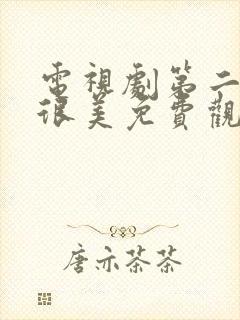 電視劇第二
很美免費觀
唐亦茶茶